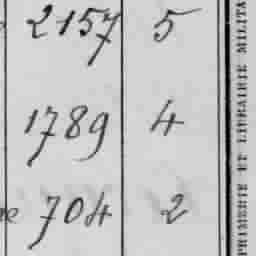 2157 5
1789 4
704 2
PRIMERIE ET LIBRAIRIE MILITA